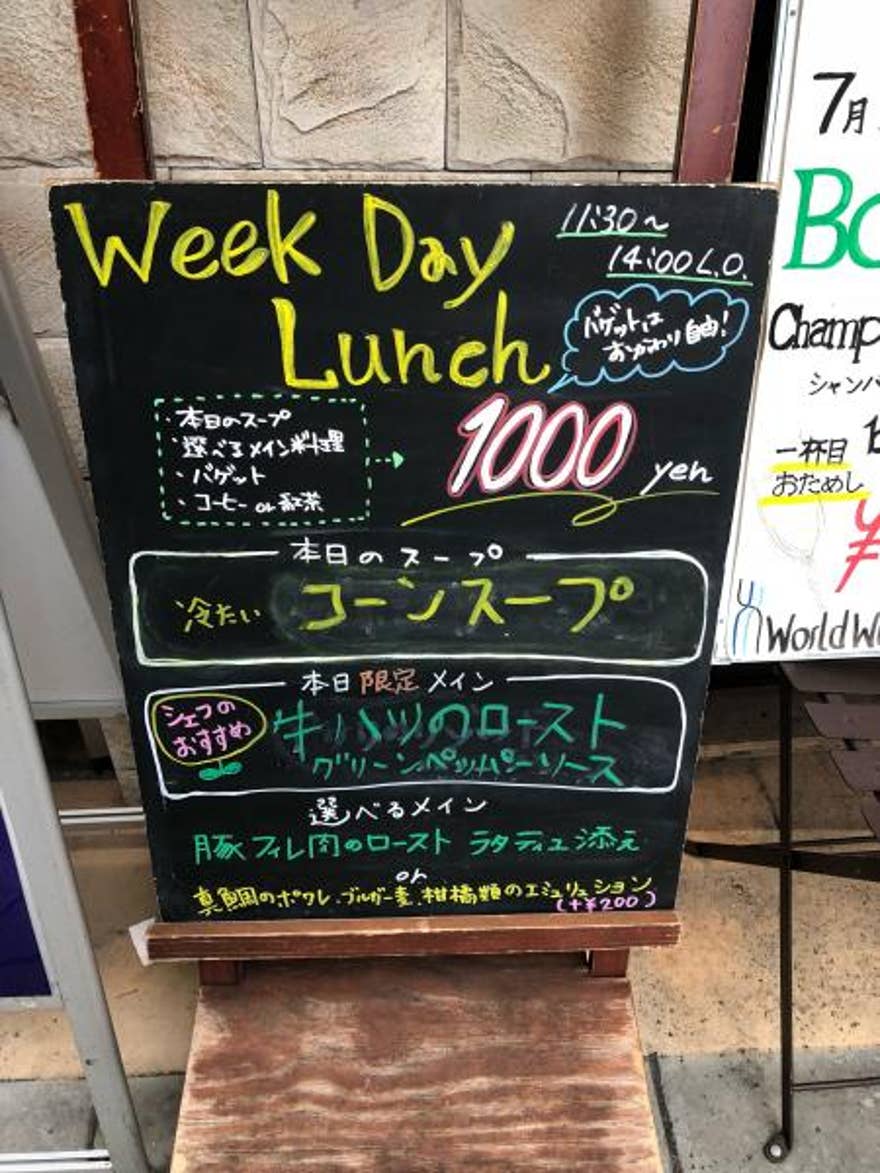 Week Day
Lunch
11:30～
14:00 L.O.
バゲットは
おかわり自由!
・本日のスープ
・選べるメイン料理
・バゲット
・コーヒー or 紅茶
1000 yen
本日のスープ
冷たい コーンスープ
本日限定メイン
シェフの
おすすめ
牛ハツのロースト
グリーンペッパーソース
選べるメイン
豚フィレ肉のロースト ラタティユ添え
or
真鯛のポワレ、ブルガー麦、柑橘類のエミュリュション
(+¥200)
7月
Bo
Champ
シャンパ
一杯目
おためし
¥
WorldW